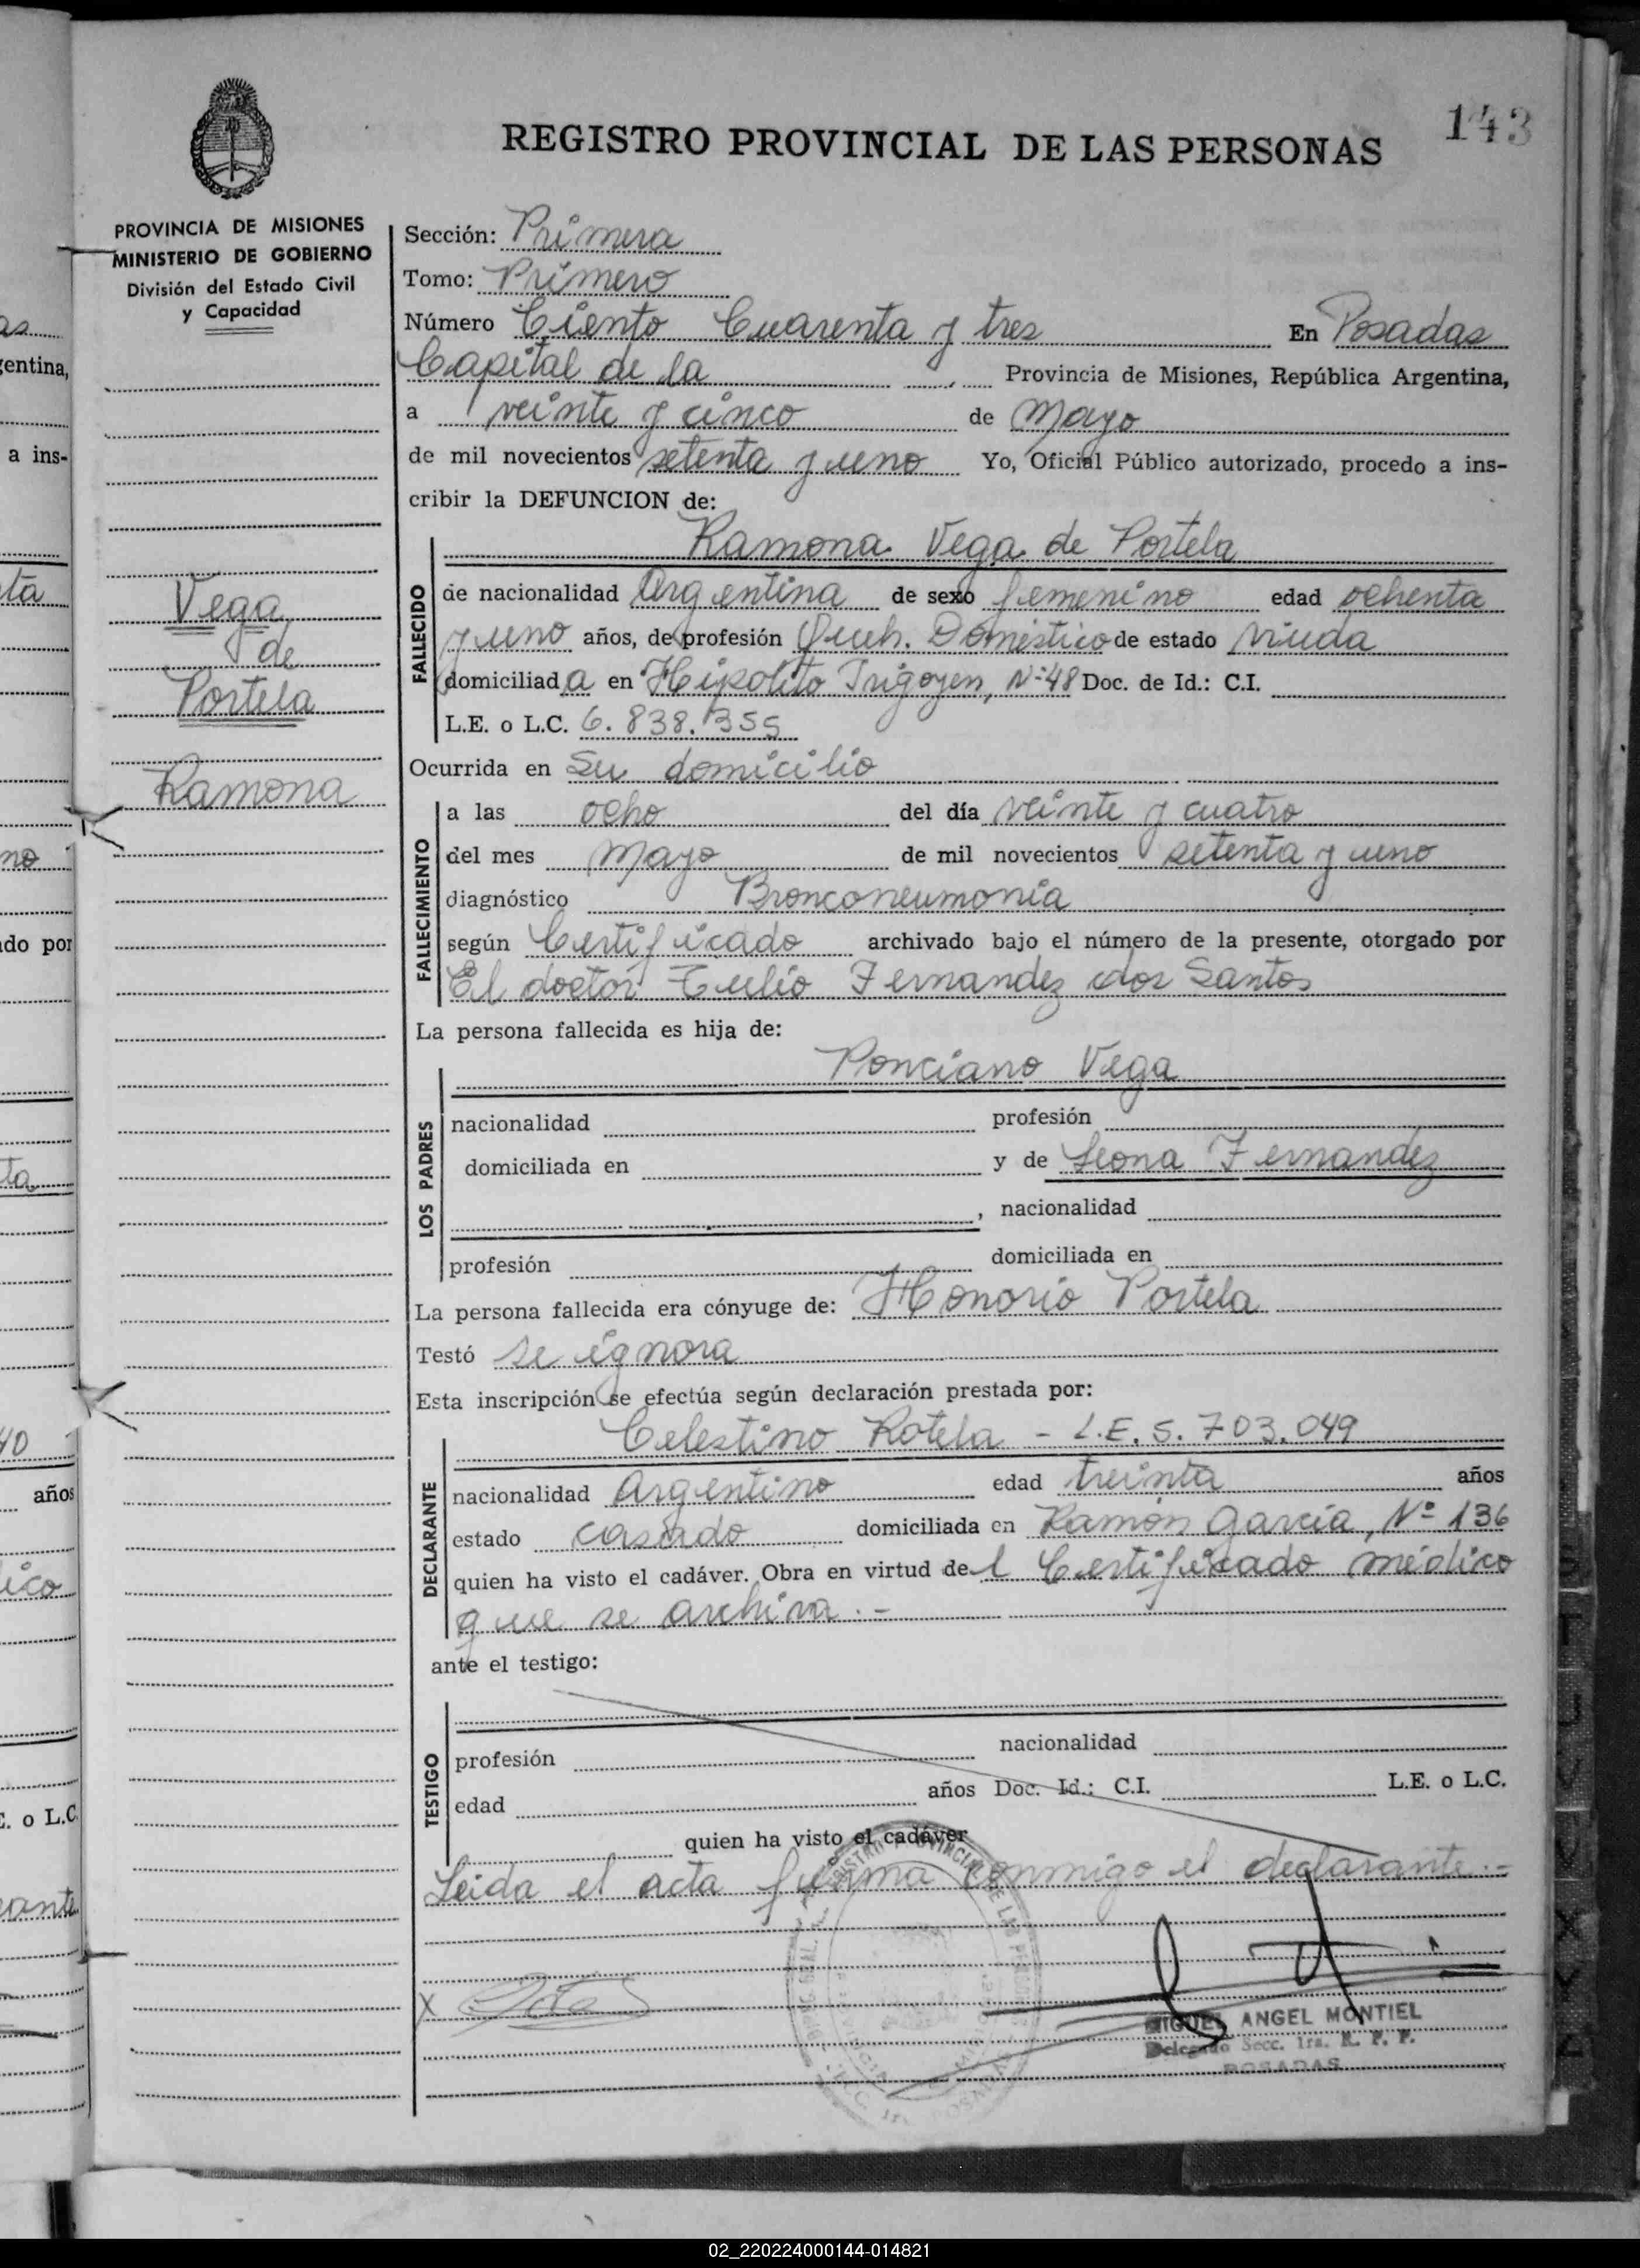 143
REGISTRO PROVINCIAL DE LAS PERSONAS
PROVINCIA DE MISIONES
MINISTERIO DE GOBIERNO
División del Estado Civil
y Capacidad
Vega
de
Portela
Ramona
Sección: Primera
Tomo: Primero
Número Ciento Cuarenta y tres En Posadas
Capital de la Provincia de Misiones, República Argentina,
a veinte y cinco de Mayo
de mil novecientos setenta y uno Yo, Oficial Público autorizado, procedo a ins-
cribir la DEFUNCION de:
Ramona Vega de Portela
FALLECIDO
de nacionalidad Argentina de sexo femenino edad ochenta
y uno años, de profesión Queh. Doméstico de estado viuda
domiciliada en Hipolito Irigoyen, Nº 48 Doc. de Id.: C.I.
L.E. o L.C. 6.838.355
Ocurrida en Su domicilio
FALLECIMIENTO
a las ocho del día veinte y cuatro
del mes Mayo de mil novecientos setenta y uno
diagnóstico Bronconeumonía
según Certificado archivado bajo el número de la presente, otorgado por
El doctor Tulio Fernandez dos Santos
La persona fallecida es hija de:
Ponciano Vega
LOS PADRES
nacionalidad profesión
domiciliada en y de Leona Fernandez
, nacionalidad
profesión domiciliada en
La persona fallecida era cónyuge de: Honorio Portela
Testó se ignora
Esta inscripción se efectúa según declaración prestada por:
Celestino Rotela - L.E. 5.703.049
DECLARANTE
nacionalidad Argentino edad treinta años
estado casado domiciliada en Ramón García, Nº 136
quien ha visto el cadáver. Obra en virtud del Certificado médico
que se archiva.-
ante el testigo:
TESTIGO
profesión nacionalidad
edad años Doc. Id.: C.I. L.E. o L.C.
quien ha visto el cadáver
Leida el acta firma conmigo el declarante.-
X
MIGUEL ANGEL MONTIEL
Delegado Secc. 1ra. R. P. P.
POSADAS
02_220224000144-014821